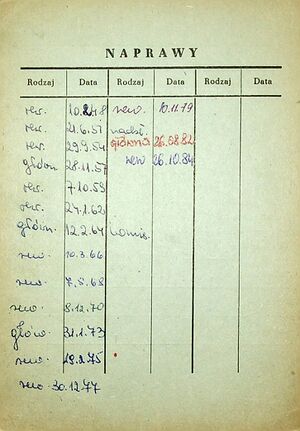 NAPRAWY
Rodzaj Data Rodzaj Data Rodzaj Data
rew. 10.2.48 rew. 10.11.79
rew. 21.6.51
rew. 29.9.54 główna 26.08.82
główn 28.11.57 rew 26.10.84
rew. 7.10.59
rew. 27.1.62
główn. 12.2.64
rew. 10.3.66
rew. 7.5.68
rew 8.12.70
główn. 31.1.73
rew. 19.2.75
rew 30.12.77